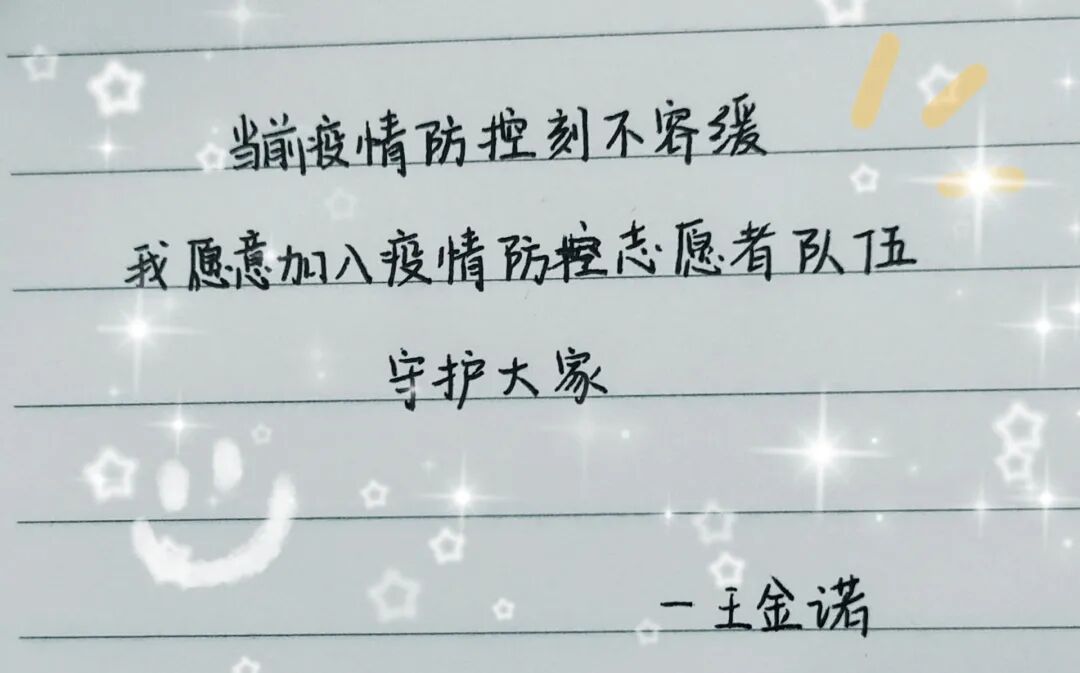 当前疫情防控刻不容缓
我愿意加入疫情防控志愿者队伍
守护大家
一王金诺